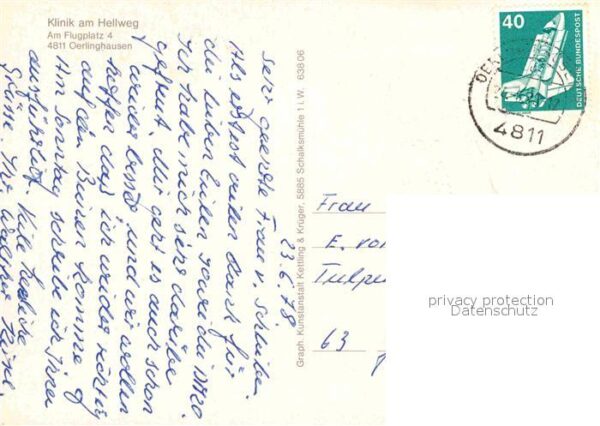 Klinik am Hellweg
Am Flugplatz 4
4811 Oerlinghausen
23.6.78
Sehr geehrte Frau v.
Als Erstes vielen Dank für
die lieben Zeilen sowie die DM 20
Ich habe mich sehr darüber
gefreut. Mir geht es auch schon
wieder besser und wir wollen
hoffen das ich wieder richtig
auf den Beinen komme.
Am Sonntag schreibe ich Ihnen
ausführlich. Viele herzliche
Grüße Ihr
Graph. Kunstanstalt Kettling & Krüger, 5885 Schalksmühle 1 i. W. 63806
40
DEUTSCHE BUNDESPOST
4811
Frau
E. von
Tulpe
63
privacy protection
Datenschutz